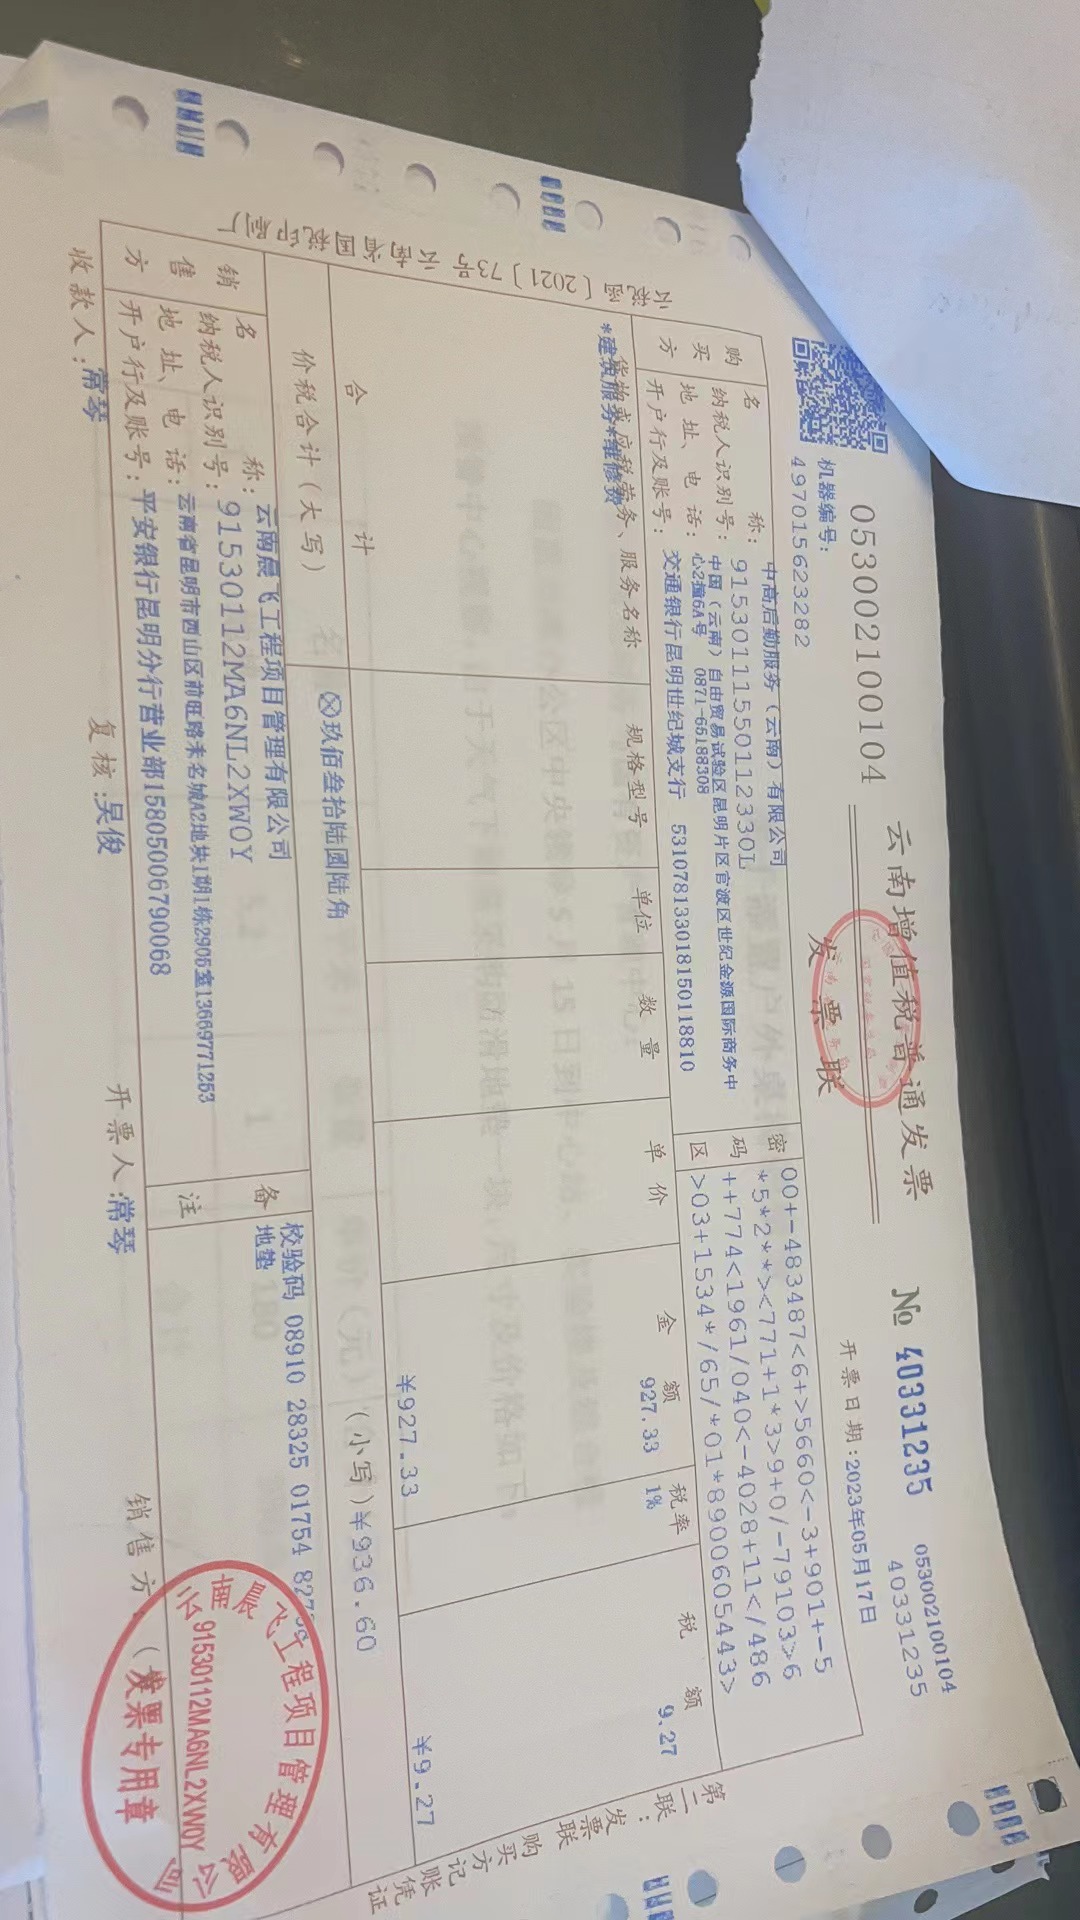 053002100104
云南增值税普通发票
发票联
№ 40331235
053002100104
40331235
机器编号:
497015623282
开票日期:2023年05月17日
购买方
名称:中高后勤服务(云南)有限公司
纳税人识别号:91530111550112330L
地址、电话:中国(云南)自由贸易试验区昆明片区官渡区世纪金源国际商务中
心2撞6A号 0871-65188308
开户行及账号:交通银行昆明世纪城支行 531078133018150118810
密码区
00+-483487<6+>5660<-3+901+-5
*5*2**><771+1*3>9+0/-79103>6
++774<1961/040<-4028+11</486
>03+1534*/65/*01*8900605443>
货物或应税劳务、服务名称 规格型号 单位 数量 单价 金额 税率 税额
*建筑服务*维修费 927.33 1% 9.27
合计 ¥927.33 ¥9.27
价税合计(大写) ⊗玖佰叁拾陆圆陆角 (小写)¥936.60
销售方
名称:云南晨飞工程项目管理有限公司
纳税人识别号:91530112MA6NL2XW0Y
地址、电话:云南省昆明市西山区前旺路未名城A2地块1期1栋2905室13669771253
开户行及账号:平安银行昆明分行营业部15805006790068
备注
校验码 08910 28325 01754
地垫
收款人:常琴 复核:吴俊 开票人:常琴 销售方:(
云南晨飞工程项目管理有限公司
91530112MA6NL2XW0Y
发票专用章
云税函[2021]73号云南省国税印刷厂
第二联:发票联 购买方记账凭证